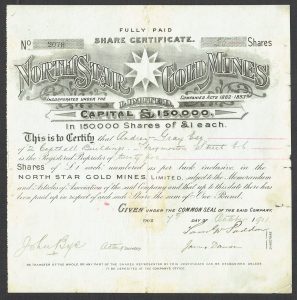 FULLY PAID
SHARE CERTIFICATE.
No 2078 Shares
NORTH STAR GOLD MINES
LIMITED.
INCORPORATED UNDER THE COMPANIES ACTS 1862-1893
CAPITAL £150,000.
In 150000 Shares of £1 each.
This is to Certify that Andrew Gray Esq
of 2 Copthall Buildings, Throgmorton Street E.C.
is the Registered Proprietor of
Shares of £1 each numbered as per back inclusive, in the
NORTH STAR GOLD MINES LIMITED, subject to the Memorandum
and Articles of Association of the said Company and that up to this date there has
been paid up in respect of each such Share the sum of One Pound.
GIVEN UNDER THE COMMON SEAL OF THE SAID COMPANY,
THIS DAY OF
John Bye
Secretary
NO TRANSFER OF THE WHOLE OR ANY PART OF THE SHARES REPRESENTED BY THIS CERTIFICATE CAN BE REGISTERED UNLESS
IT BE DEPOSITED AT THE COMPANY'S OFFICE.